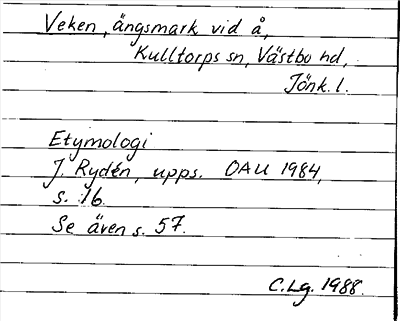 Veken, ängsmark vid å,
Kulltorps sn, Västbo hd,
Jönk. l.
Etymologi
J. Rydén, upps. OAU 1984,
s. 16.
Se även s. 57.
C.Lg. 1988.